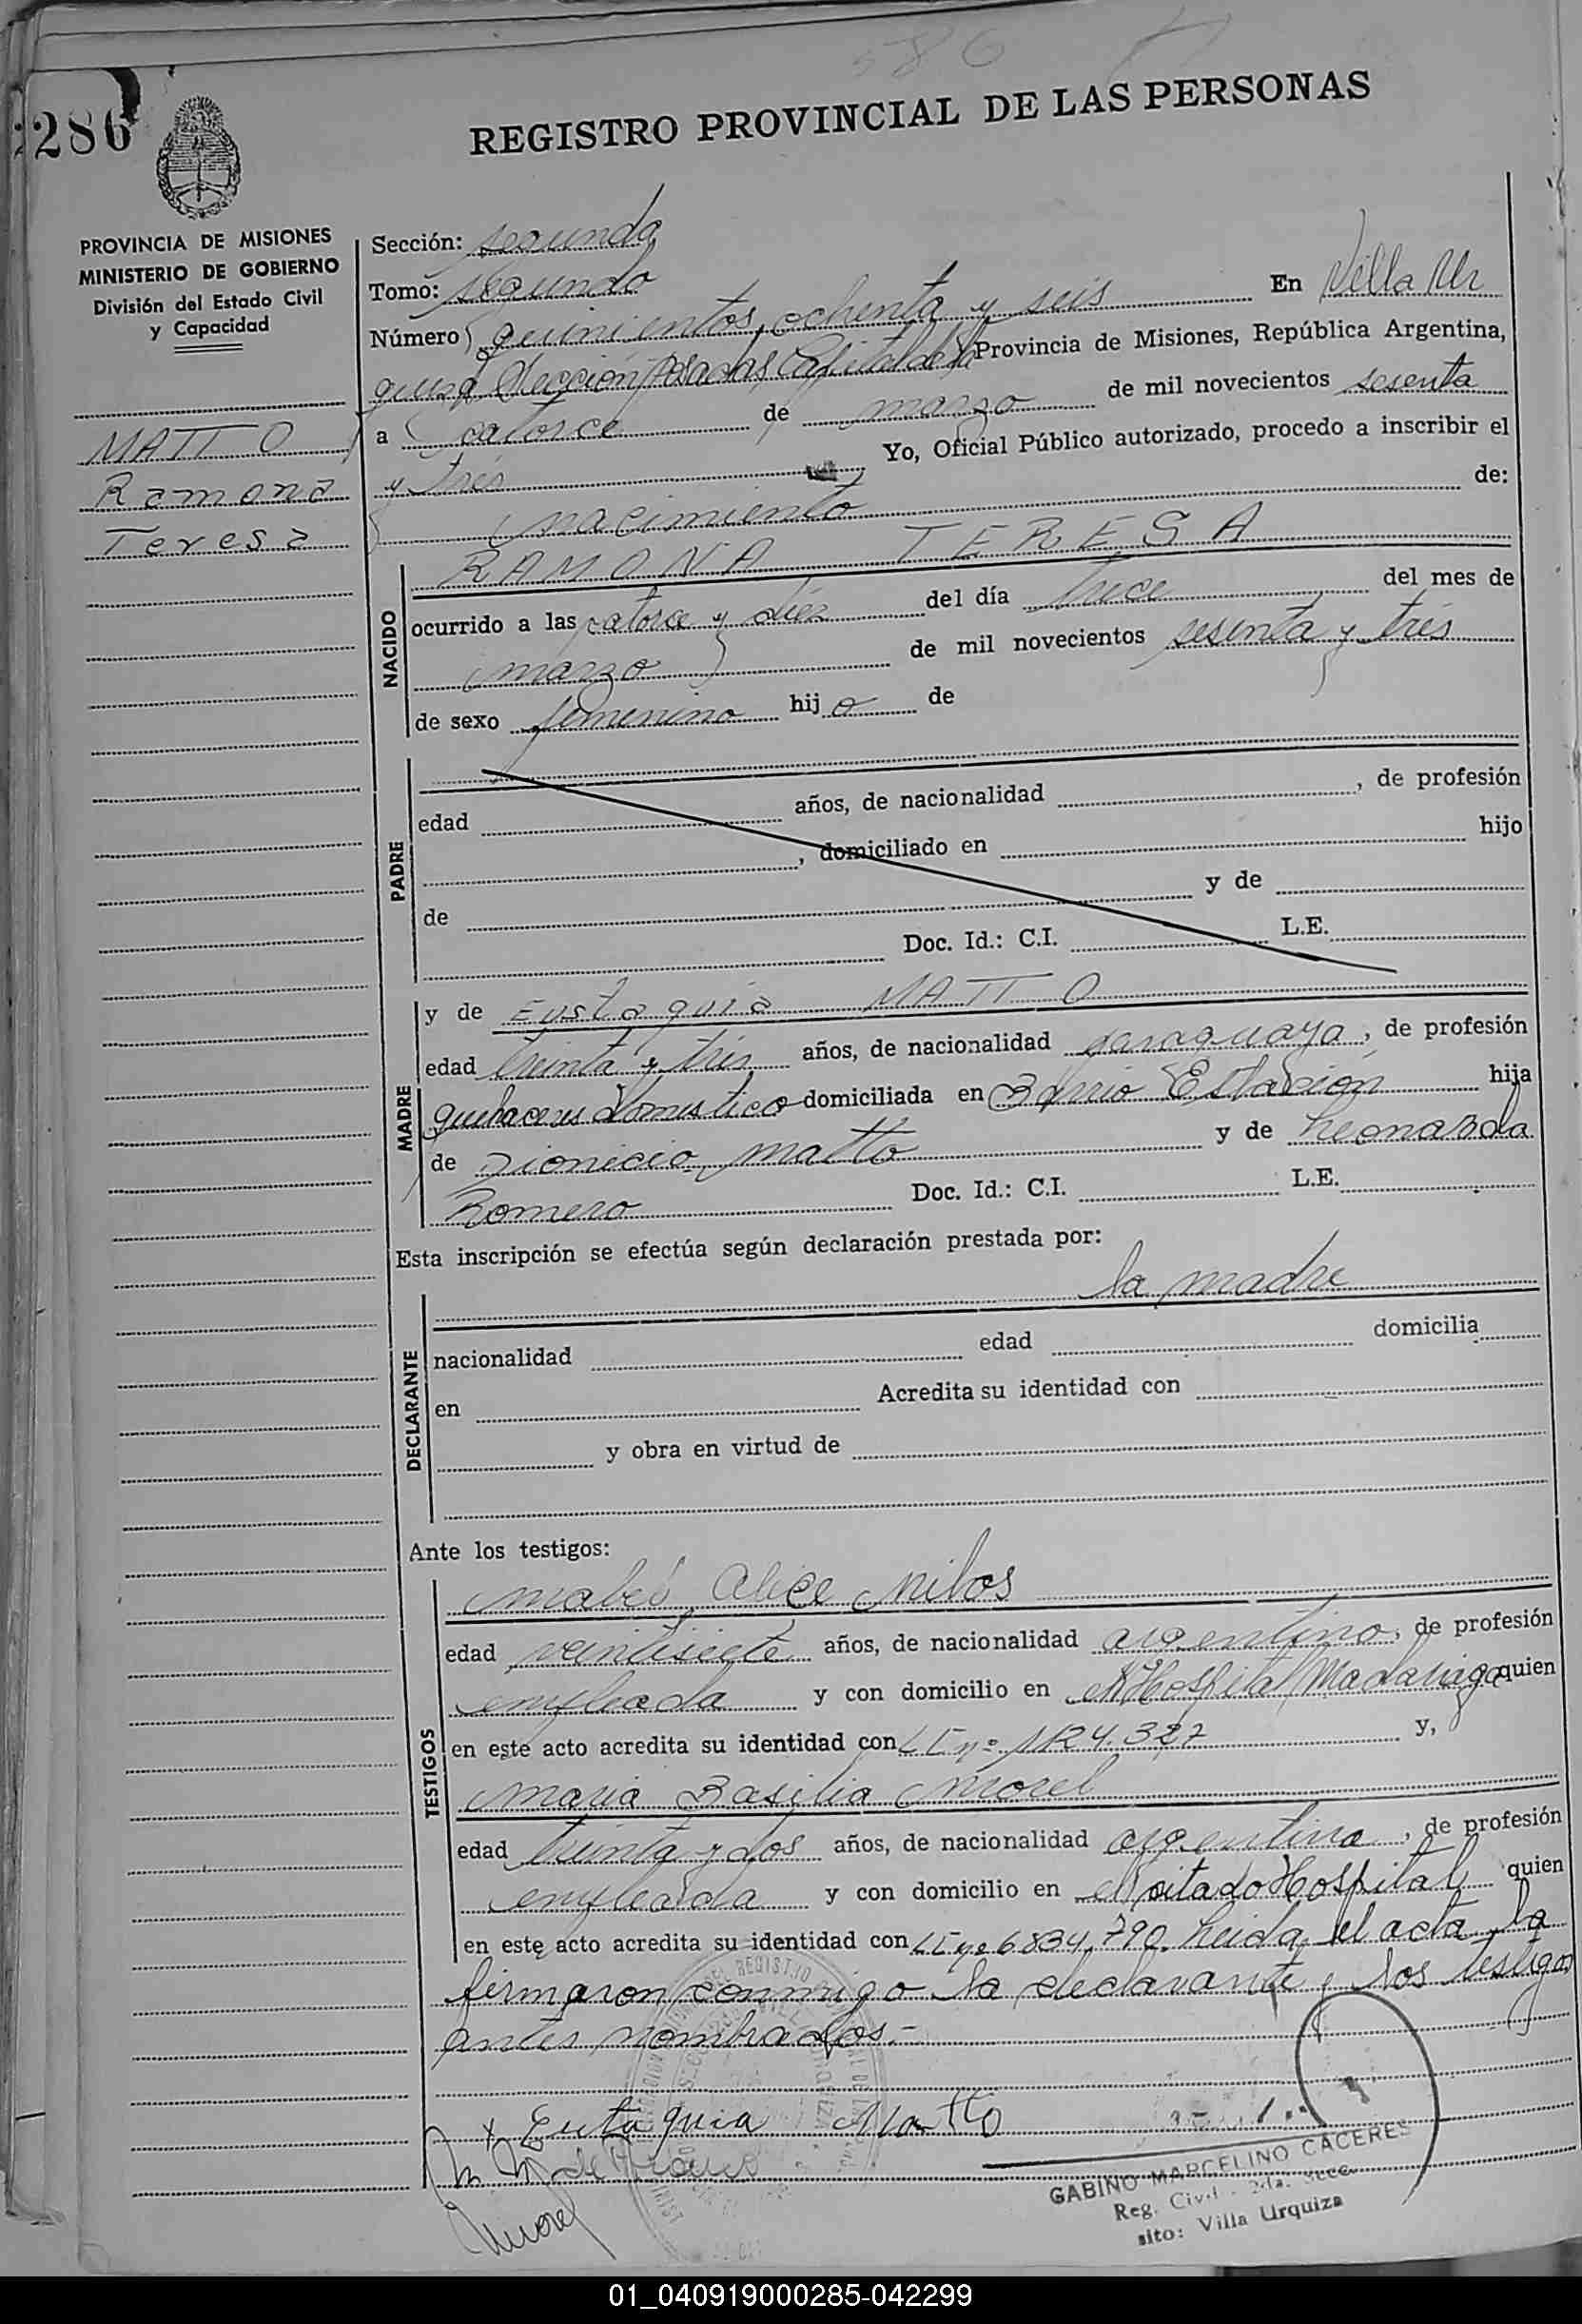 586
286
REGISTRO PROVINCIAL DE LAS PERSONAS
PROVINCIA DE MISIONES
MINISTERIO DE GOBIERNO
División del Estado Civil
y Capacidad
MATTO
Ramona
Teresa
Sección: segunda
Tomo: segundo
Número quinientos ochenta y seis En Villa Ur
quiza Sección Posadas Capital de la Provincia de Misiones, República Argentina,
a catorce de marzo de mil novecientos sesenta
y tres Yo, Oficial Público autorizado, procedo a inscribir el
nacimiento de:
NACIDO
RAMONA TERESA
ocurrido a las catorce y diez del día trece del mes de
marzo de mil novecientos sesenta y tres
de sexo femenino hijo de
PADRE
edad años, de nacionalidad , de profesión
, domiciliado en hijo
de y de
Doc. Id.: C.I. L.E.
MADRE
y de Eustaquia MATTO
edad treinta y tres años, de nacionalidad paraguaya, de profesión
quehaceres domestico domiciliada en Barrio Estación hija
de Dionicio Matto y de Leonarda
Romero Doc. Id.: C.I. L.E.
Esta inscripción se efectúa según declaración prestada por:
DECLARANTE
la madre
nacionalidad edad domicilia
en Acredita su identidad con
y obra en virtud de
Ante los testigos:
TESTIGOS
Mabel Alice Milos
edad veintisiete años, de nacionalidad argentino, de profesión
empleada y con domicilio en el Hospital Madariaga quien
en este acto acredita su identidad con LC nº 1124.327 y,
Maria Basilia Morel
edad treinta y dos años, de nacionalidad argentina, de profesión
empleada y con domicilio en el citado Hospital quien
en este acto acredita su identidad con LC nº 6834.790. Leida el acta la
firmaron conmigo la declarante y los testigos
antes nombrados.-
x Eutaquia Matto
Morel
GABINO MARCELINO CACERES
Reg. Civil - 2da. Secc.
sito: Villa Urquiza
01_040919000285-042299